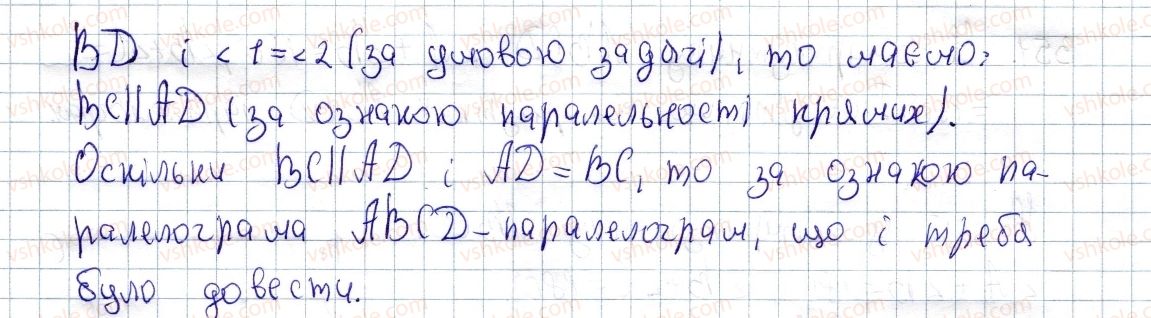 BD і < 1 = < 2 (за умовою задачі), то маємо:
BC||AD (за ознакою паралельності прямих).
Оскільки BC||AD і AD = BC, то за ознакою па-
ралелограма ABCD - паралелограм, що і треба
було довести.